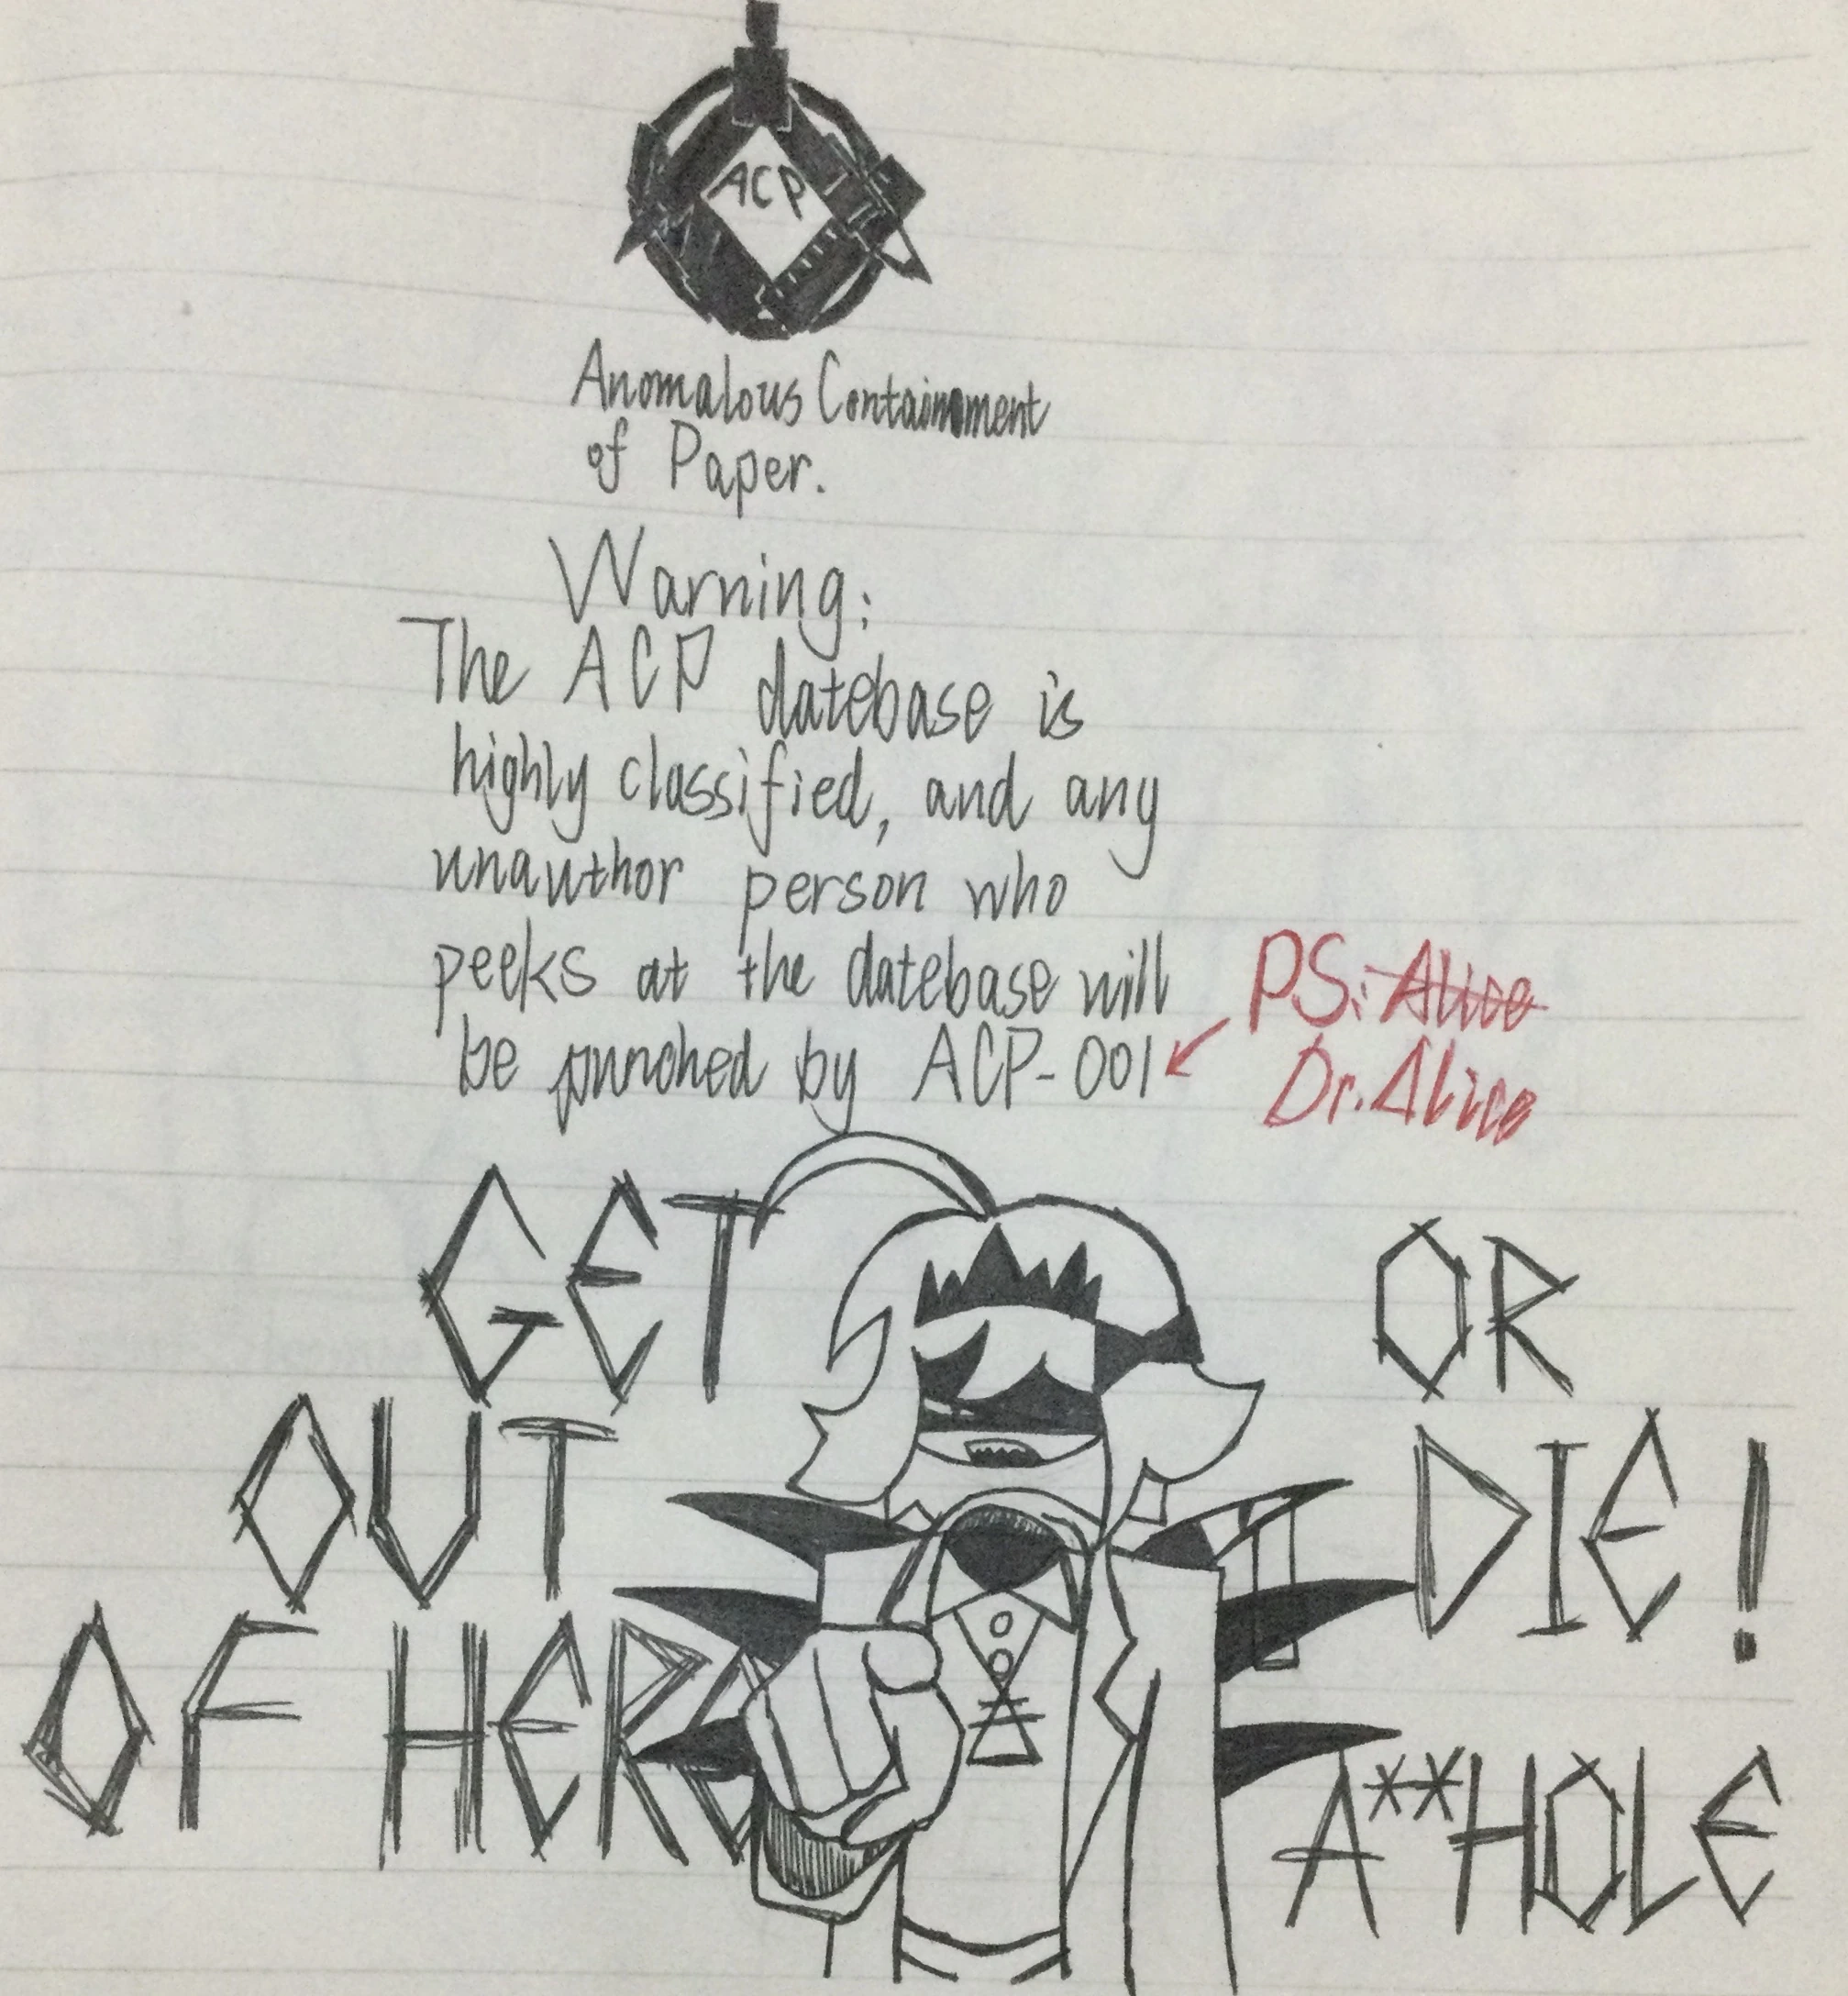 ACP
Anomalous Containment
of Paper.
Warning:
The ACP datebase is
highly classified, and any
unauthor person who
peeks at the datebase will
be punched by ACP-001
PS: Alice
Dr. Alice
GET
OUT
OF HERE
OR
DIE!
A**HOLE